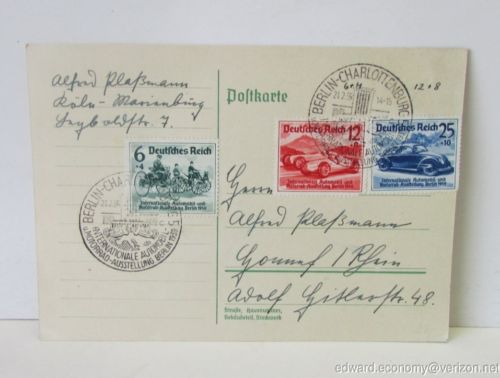 Alfred Plaßmann
Köln-Marienburg
Seyboldstr. 7
Postkarte
6
Deutsches Reich
Internationale Automobil- und
Motorrad-Ausstellung Berlin 1939
Deutsches Reich 12
Internationale Automobil- und
Motorrad-Ausstellung Berlin 1939
Deutsches Reich 25
+10
Internationale Automobil- und
Motorrad-Ausstellung, Berlin 1939
BERLIN-CHARLOTTENBURG
14-15
6+4
12+8
BERLIN-CHA
INTERNATIONALE AUTOMOBIL-
u. MOTORRAD-AUSSTELLUNG BERLIN 1939
Herrn
Alfred Plaßmann
Honnef / Rhein
Adolf Hitlerstr. 48.
Straße, Hausnummer,
Gebäudeteil, Stockwerk
edward.economy@verizon.net